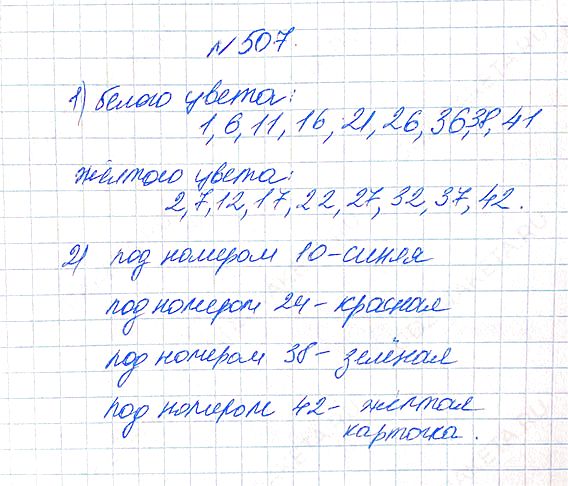 №507.
1) белого цвета:
1, 6, 11, 16, 21, 26, 36, 38, 41
жёлтого цвета:
2, 7, 12, 17, 22, 27, 32, 37, 42.
2) под номером 10 - синяя
под номером 24 - красная
под номером 38 - зелёная
под номером 42 - жёлтая
карточка.